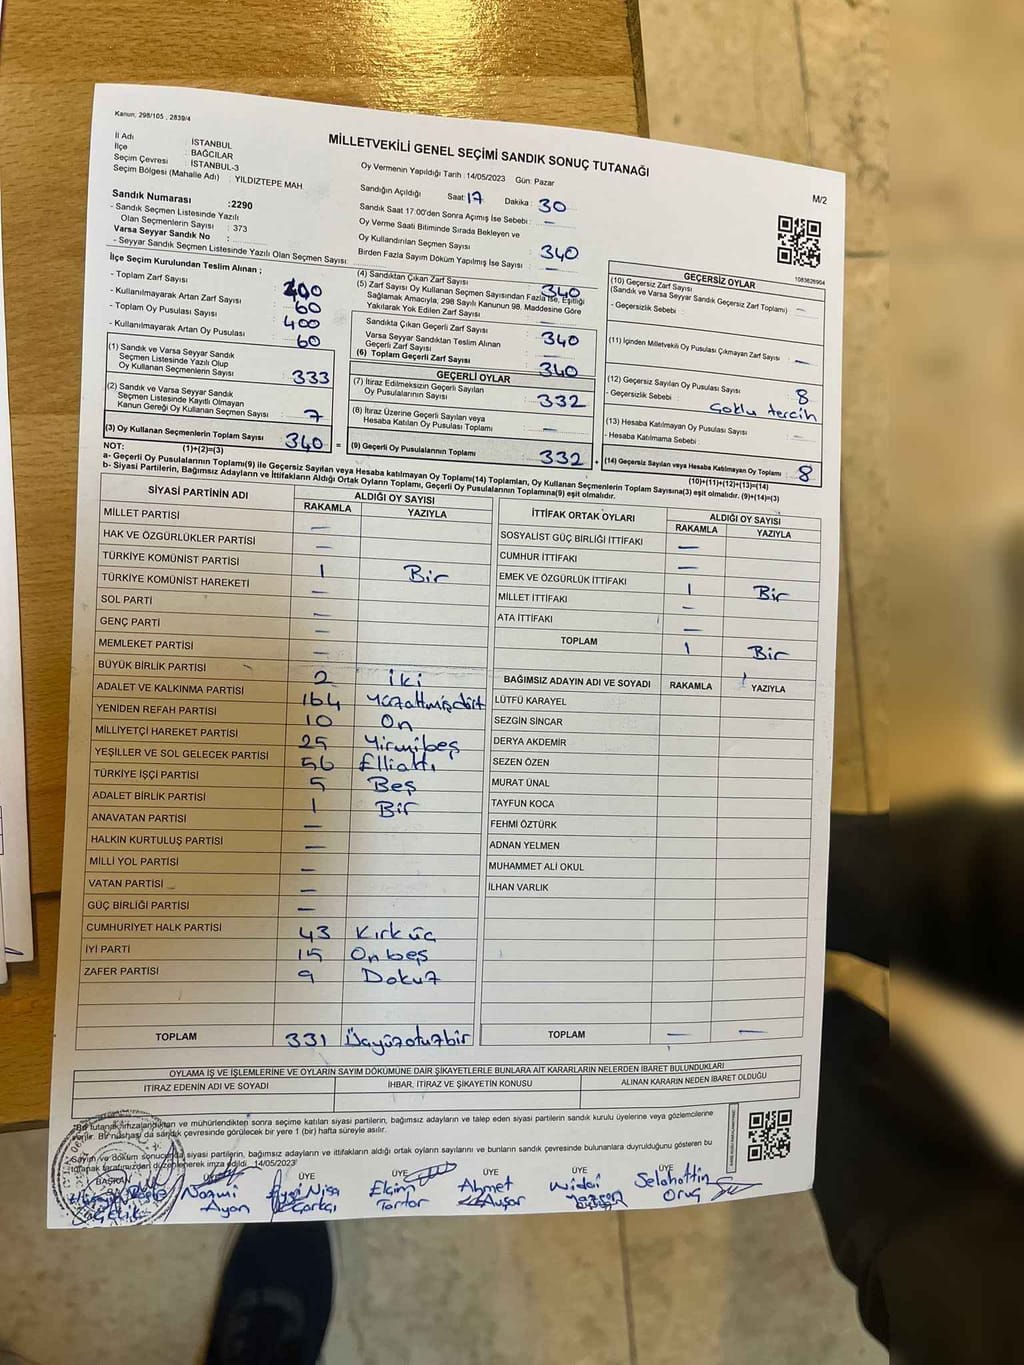 Kanun: 298/105 , 2839/4
MİLLETVEKİLİ GENEL SEÇİMİ SANDIK SONUÇ TUTANAĞI
M/2
İl Adı : İSTANBUL
İlçe : BAĞCILAR
Seçim Çevresi : İSTANBUL-3
Seçim Bölgesi (Mahalle Adı) : YILDIZTEPE MAH
Oy Vermenin Yapıldığı Tarih :14/05/2023 Gün: Pazar
Sandığın Açıldığı Saat: 17 Dakika : 30
Sandık Saat 17:00'den Sonra Açımış İse Sebebi : —
Oy Verme Saati Bitiminde Sırada Bekleyen ve
Oy Kullandırılan Seçmen Sayısı 340
Birden Fazla Sayım Döküm Yapılmış İse Sayısı : —
Sandık Numarası :2290
- Sandık Seçmen Listesinde Yazılı
Olan Seçmenlerin Sayısı : 373
Varsa Seyyar Sandık No :
- Seyyar Sandık Seçmen Listesinde Yazılı Olan Seçmen Sayısı:
İlçe Seçim Kurulundan Teslim Alınan ;
- Toplam Zarf Sayısı 400
- Kullanılmayarak Artan Zarf Sayısı 60
- Toplam Oy Pusulası Sayısı 400
- Kullanılmayarak Artan Oy Pusulası 60
(1) Sandık ve Varsa Seyyar Sandık
Seçmen Listesinde Yazılı Olup
Oy Kullanan Seçmenlerin Sayısı 333
(2) Sandık ve Varsa Seyyar Sandık
Seçmen Listesinde Kayıtlı Olmayan
Kanun Gereği Oy Kullanan Seçmen Sayısı 7
(3) Oy Kullanan Seçmenlerin Toplam Sayısı 340 =
(1)+(2)=(3)
(4) Sandıktan Çıkan Zarf Sayısı 340
(5) Zarf Sayısı Oy Kullanan Seçmen Sayısından Fazla ise, Eşitliği
Sağlamak Amacıyla, 298 Sayılı Kanunun 98. Maddesine Göre
Yakılarak Yok Edilen Zarf Sayısı —
Sandıkta Çıkan Geçerli Zarf Sayısı 340
Varsa Seyyar Sandıktan Teslim Alınan
Geçerli Zarf Sayısı —
(6) Toplam Geçerli Zarf Sayısı 340
GEÇERLİ OYLAR
(7) İtiraz Edilmeksizin Geçerli Sayılan
Oy Pusulalarının Sayısı 332
(8) İtiraz Üzerine Geçerli Sayılan veya
Hesaba Katılan Oy Pusulası Toplamı —
(9) Geçerli Oy Pusulalarının Toplamı 332 +
1083626904
GEÇERSİZ OYLAR
(10) Geçersiz Zarf Sayısı
(Sandık ve Varsa Seyyar Sandık Geçersiz Zarf Toplamı) —
- Geçersizlik Sebebi :
(11) İçinden Milletvekili Oy Pusulası Çıkmayan Zarf Sayısı —
(12) Geçersiz Sayılan Oy Pusulası Sayısı 8
- Geçersizlik Sebebi : Çoklu tercih
(13) Hesaba Katılmayan Oy Pusulası Sayısı —
- Hesaba Katılmama Sebebi :
(14) Geçersiz Sayılan veya Hesaba Katılmayan Oy Toplamı 8
(10)+(11)+(12)+(13)=(14)
NOT:
a- Geçerli Oy Pusulalarının Toplamı(9) ile Geçersiz Sayılan veya Hesaba katılmayan Oy Toplamı(14) Toplamları, Oy Kullanan Seçmenlerin Toplam Sayısına(3) eşit olmalıdır. (9)+(14)=(3)
b- Siyasi Partilerin, Bağımsız Adayların ve İttifakların Aldığı Ortak Oyların Toplamı, Geçerli Oy Pusulalarının Toplamına(9) eşit olmalıdır.
SİYASİ PARTİNİN ADI ALDIĞI OY SAYISI
RAKAMLA YAZIYLA
MİLLET PARTİSİ —
HAK VE ÖZGÜRLÜKLER PARTİSİ —
TÜRKİYE KOMÜNİST PARTİSİ 1 Bir
TÜRKİYE KOMÜNİST HAREKETİ —
SOL PARTİ —
GENÇ PARTİ —
MEMLEKET PARTİSİ —
BÜYÜK BİRLİK PARTİSİ 2 iki
ADALET VE KALKINMA PARTİSİ 164 Yüzaltmışdört
YENİDEN REFAH PARTİSİ 10 On
MİLLİYETÇİ HAREKET PARTİSİ 25 Yirmibeş
YEŞİLLER VE SOL GELECEK PARTİSİ 56 Elliakı
TÜRKİYE İŞÇİ PARTİSİ 5 Beş
ADALET BİRLİK PARTİSİ 1 Bir
ANAVATAN PARTİSİ —
HALKIN KURTULUŞ PARTİSİ —
MİLLİ YOL PARTİSİ —
VATAN PARTİSİ —
GÜÇ BİRLİĞİ PARTİSİ —
CUMHURİYET HALK PARTİSİ 43 Kırküç
İYİ PARTİ 15 Onbeş
ZAFER PARTİSİ 9 Dokuz
TOPLAM 331 Üçyüzotuzbir
İTTİFAK ORTAK OYLARI ALDIĞI OY SAYISI
RAKAMLA YAZIYLA
SOSYALİST GÜÇ BİRLİĞİ İTTİFAKI —
CUMHUR İTTİFAKI —
EMEK VE ÖZGÜRLÜK İTTİFAKI 1 Bir
MİLLET İTTİFAKI —
ATA İTTİFAKI —
TOPLAM 1 Bir
BAĞIMSIZ ADAYIN ADI VE SOYADI RAKAMLA YAZIYLA
LÜTFÜ KARAYEL
SEZGİN SİNCAR
DERYA AKDEMİR
SEZEN ÖZEN
MURAT ÜNAL
TAYFUN KOCA
FEHMİ ÖZTÜRK
ADNAN YELMEN
MUHAMMET ALİ OKUL
İLHAN VARLIK
TOPLAM — —
OYLAMA İŞ VE İŞLEMLERİNE VE OYLARIN SAYIM DÖKÜMÜNE DAİR ŞİKAYETLERLE BUNLARA AİT KARARLARIN NELERDEN İBARET BULUNDUKLARI
İTİRAZ EDENİN ADI VE SOYADI İHBAR, İTİRAZ VE ŞİKAYETİN KONUSU ALINAN KARARIN NEDEN İBARET OLDUĞU
Bu tutanak imzalandıktan ve mühürlendikten sonra seçime katılan siyasi partilerin, bağımsız adayların ve talep eden siyasi partilerin sandık kurulu üyelerine veya gözlemcilerine
verilir. Bir nüshası da sandık çevresinde görülecek bir yere 1 (bir) hafta süreyle asılır.
Sayım ve döküm sonucunda siyasi partilerin, bağımsız adayların ve ittifakların aldığı ortak oyların sayılarını ve bunların sandık çevresinde bulunanlara duyrulduğunu gösteren bu
tutanak tarafımızdan düzenlenerek imza edildi. 14/05/2023
BAŞKAN ÜYE ÜYE ÜYE ÜYE ÜYE ÜYE
Çelik
Naomi Ayan
Ayşe Nisa
Elçin Tantar
Ahmet Avşar
Selahattin Oruç